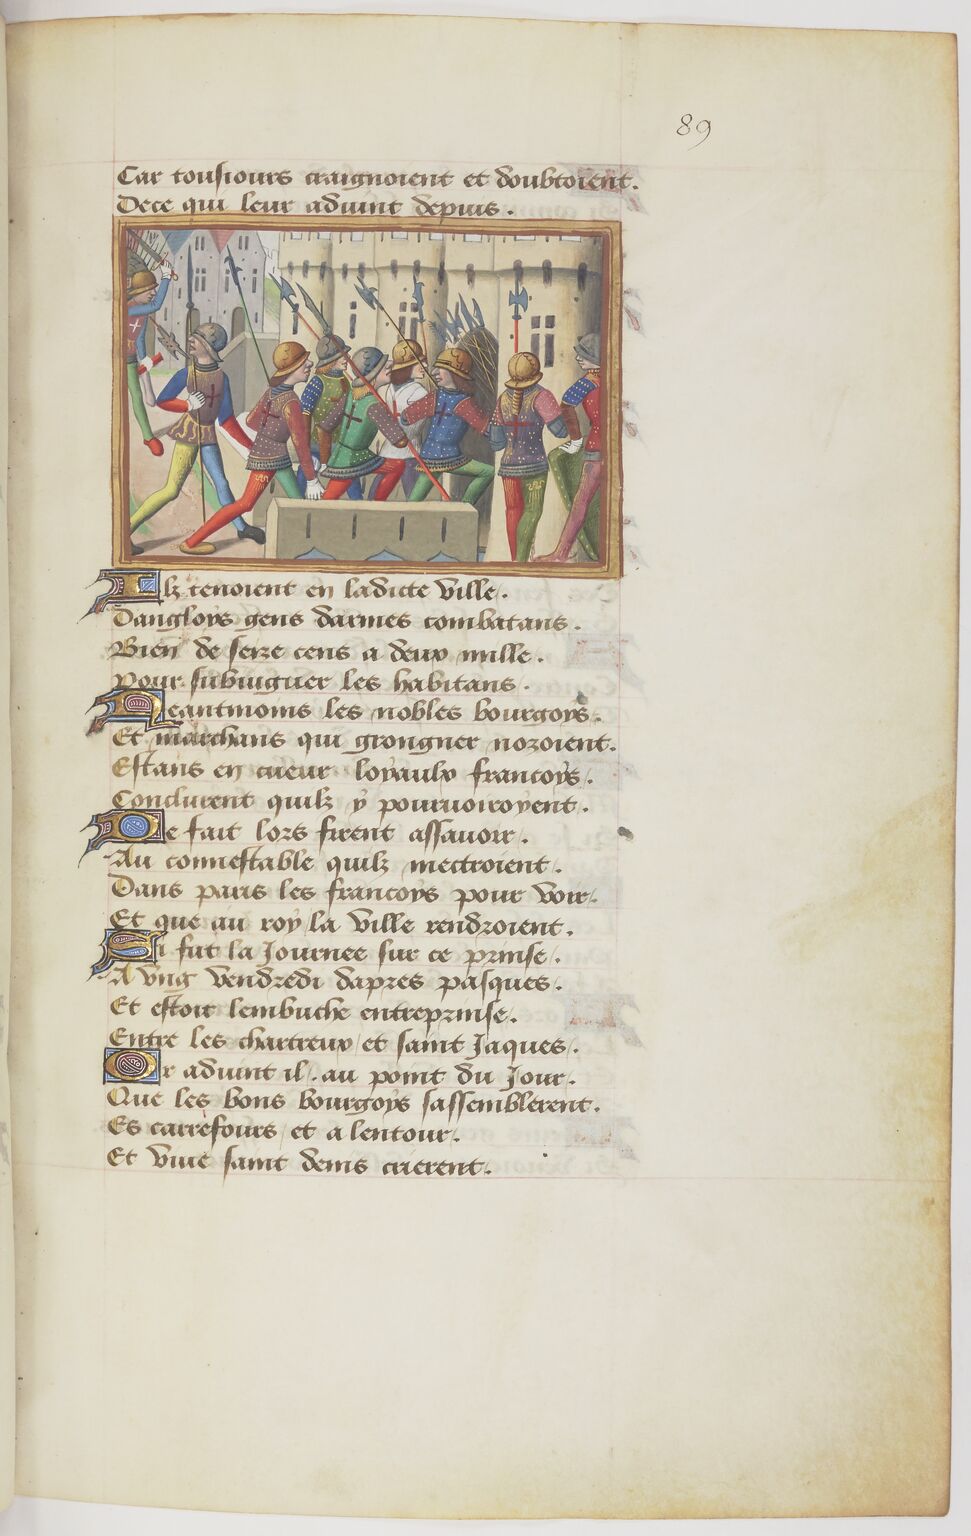 89
Car tousiours craignoient et doubtoient.
Dece qui leur aduint depuis.
Ilz tenoient en ladicte ville.
Dangloys gens darmes combatans.
Bien de seize cens a deux mille.
Pour subiuguer les habitans.
Neantmoins les nobles bourgoys.
Et marchans qui grongner nozoient.
Estans en cueur loyaulx francoys.
Conclurent quilz y pouruoiroyent.
Ce fait lors firent assauoir.
Au connestable quilz mectroient.
Dans paris les francoys pour voir.
Et que au roy la ville rendroient.
Si fut la Journee sur ce prinse.
A vng vendredi dapres pasques.
Et estoit lembuche entreprinse.
Entre les chartreux et saint Jaques.
Or aduint il. au point du Jour.
Que les bons bourgoys sassemblerent.
Es carrefours et a lentour.
Et viue saint denis crierent.